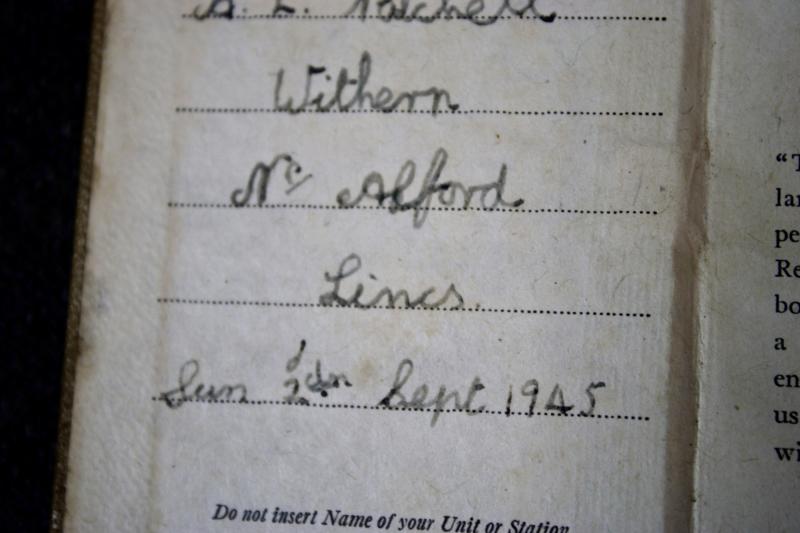 A. L.
Withern
Nr. Alford
Lincs.
Sun 2nd Sept 1945
Do not insert Name of your Unit or Station
"T
lar
pe
Re
bo
a
en
us
wi